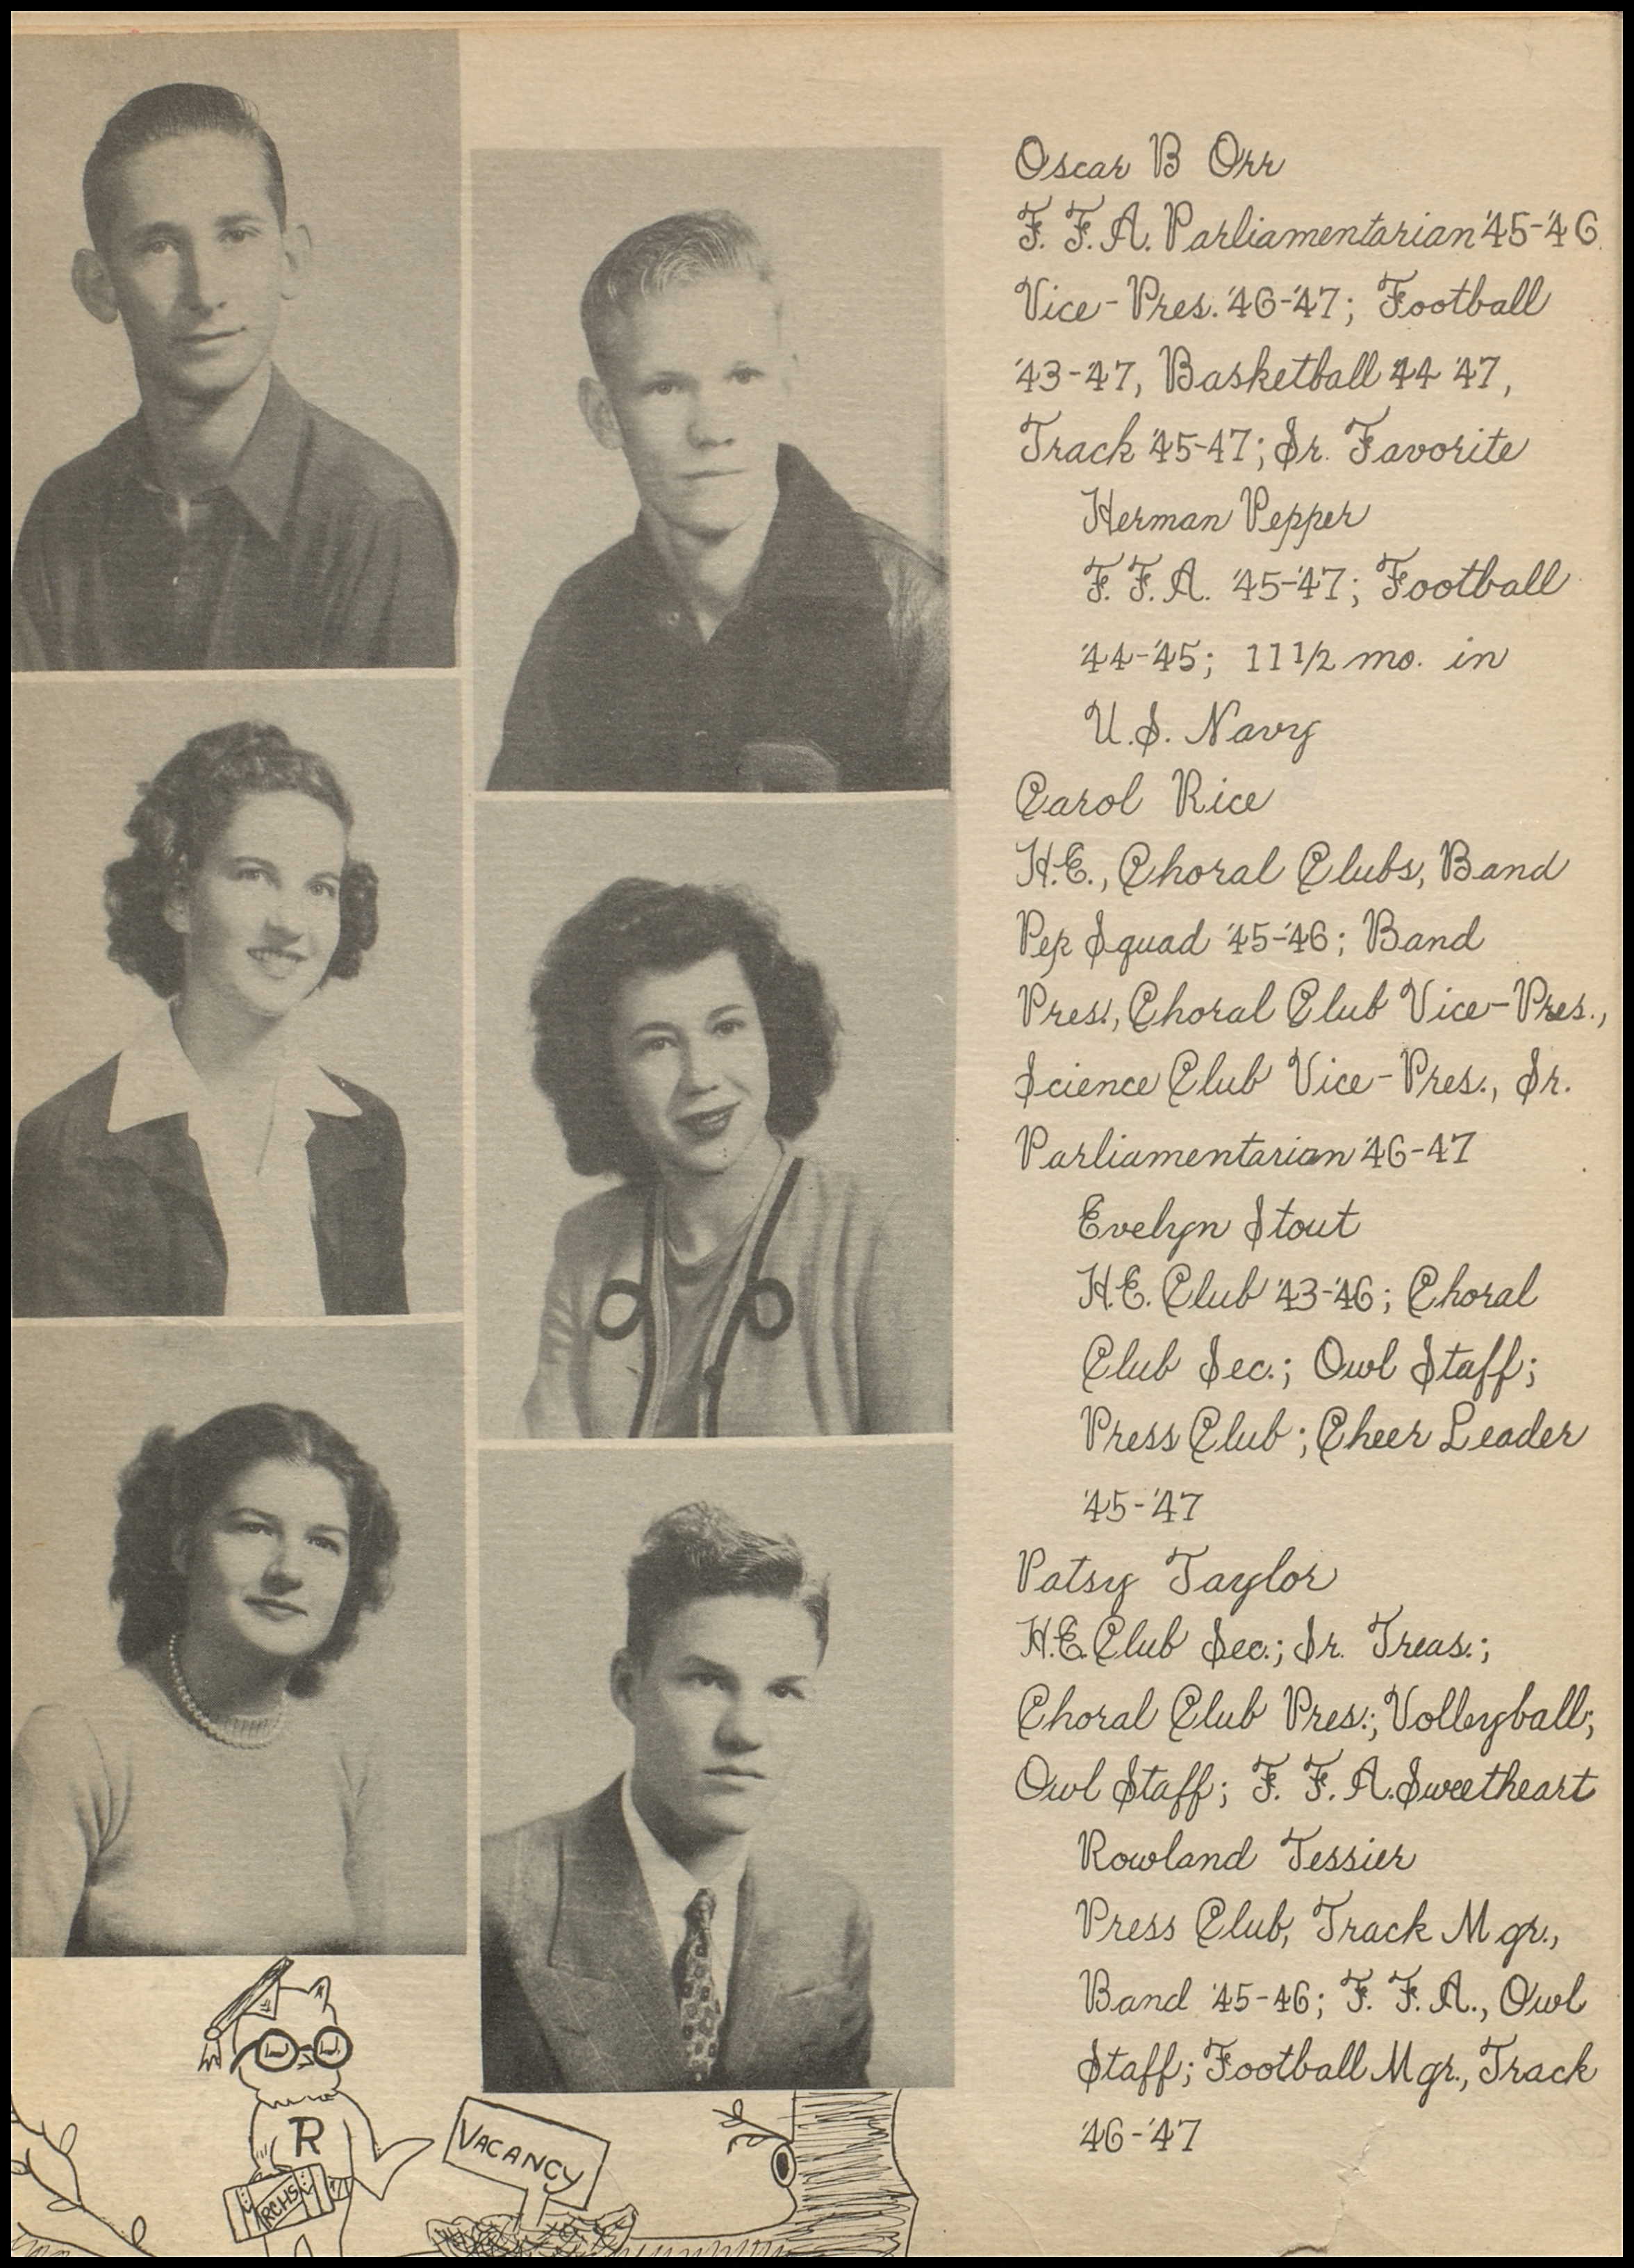 Oscar B Orr
F. F. A. Parliamentarian '45-'46
Vice-Pres. '46-'47; Football
'43-'47, Basketball '44 '47,
Track '45-'47; Sr. Favorite
Herman Pepper
F. F. A. '45-'47; Football
'44-'45; 11 1/2 mo. in
U.S. Navy
Carol Rice
H.E., Choral Clubs, Band
Pep Squad '45-'46; Band
Pres., Choral Club Vice-Pres.,
Science Club Vice-Pres., Sr.
Parliamentarian '46-47
Evelyn Stout
H.E. Club '43-'46; Choral
Club Sec.; Owl Staff;
Press Club; Cheer Leader
'45-'47
Patsy Taylor
H.E. Club Sec.; Sr. Treas.;
Choral Club Pres.; Volleyball;
Owl Staff; F. F. A. Sweetheart
Rowland Tessier
Press Club, Track Mgr.,
Band '45-46; F. F. A., Owl
Staff; Football Mgr., Track
'46-'47
R
RCHS
VACANCY